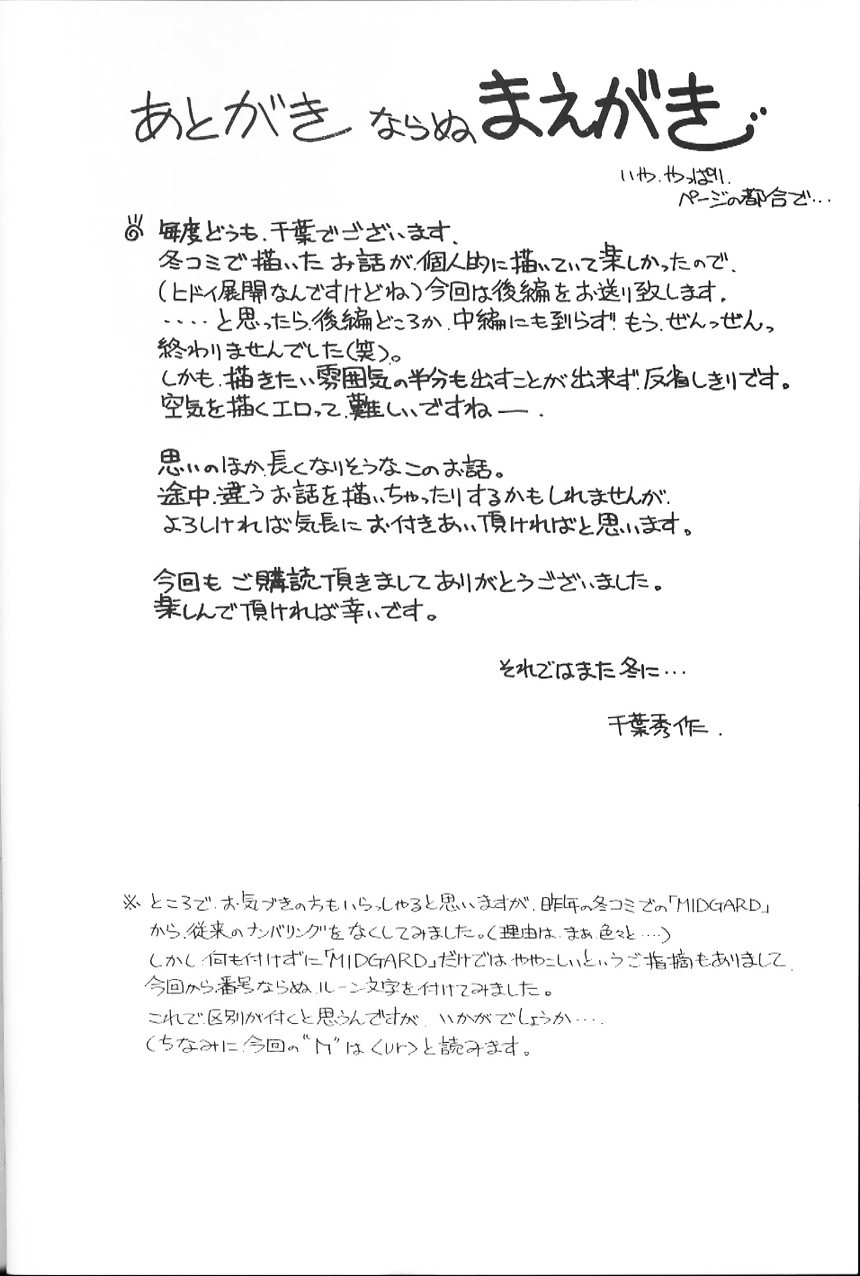 あとがき ならぬ まえがき
いや、やっぱり、
ページの都合で…
毎度どうも、千葉でございます、
冬コミで描いたお話が、個人的に描いていて楽しかったので、
(ヒドイ展開なんですけどね)今回は後編をお送り致します。
‥‥と思ったら、後編どころか、中編にも到らず、もう、ぜんっぜんっ
終わりませんでした(笑)。
しかも、描きたい雰囲気の半分も出すことが出来ず、反省しきりです。
空気を描くエロって、難しいですねー。
思いのほか、長くなりそうなこのお話。
途中、違うお話を描いちゃったりするかもしれませんが、
よろしければ気長にお付きあい頂ければと思います。
今回もご購読頂きましてありがとうございました。
楽しんで頂ければ幸いです。
それではまた冬に…
千葉秀作.
※ところで、お気づきのちもいらっしゃると思いますが、昨年の冬コミでの「MIDGARD」
から、従来のナンバリングをなくしてみました。(理由は、まぁ、色々と…)
しかし、何も付けずに「MIDGARD」だけでは、ややこしいというご指摘もありまして、
今回から番号ならぬ、ルーン文字を付けてみました。
これで、区別が付くと思うんですが、いかがでしょうか….
(ちなみに、今回の"ᚢ"は<ur>と読みます。